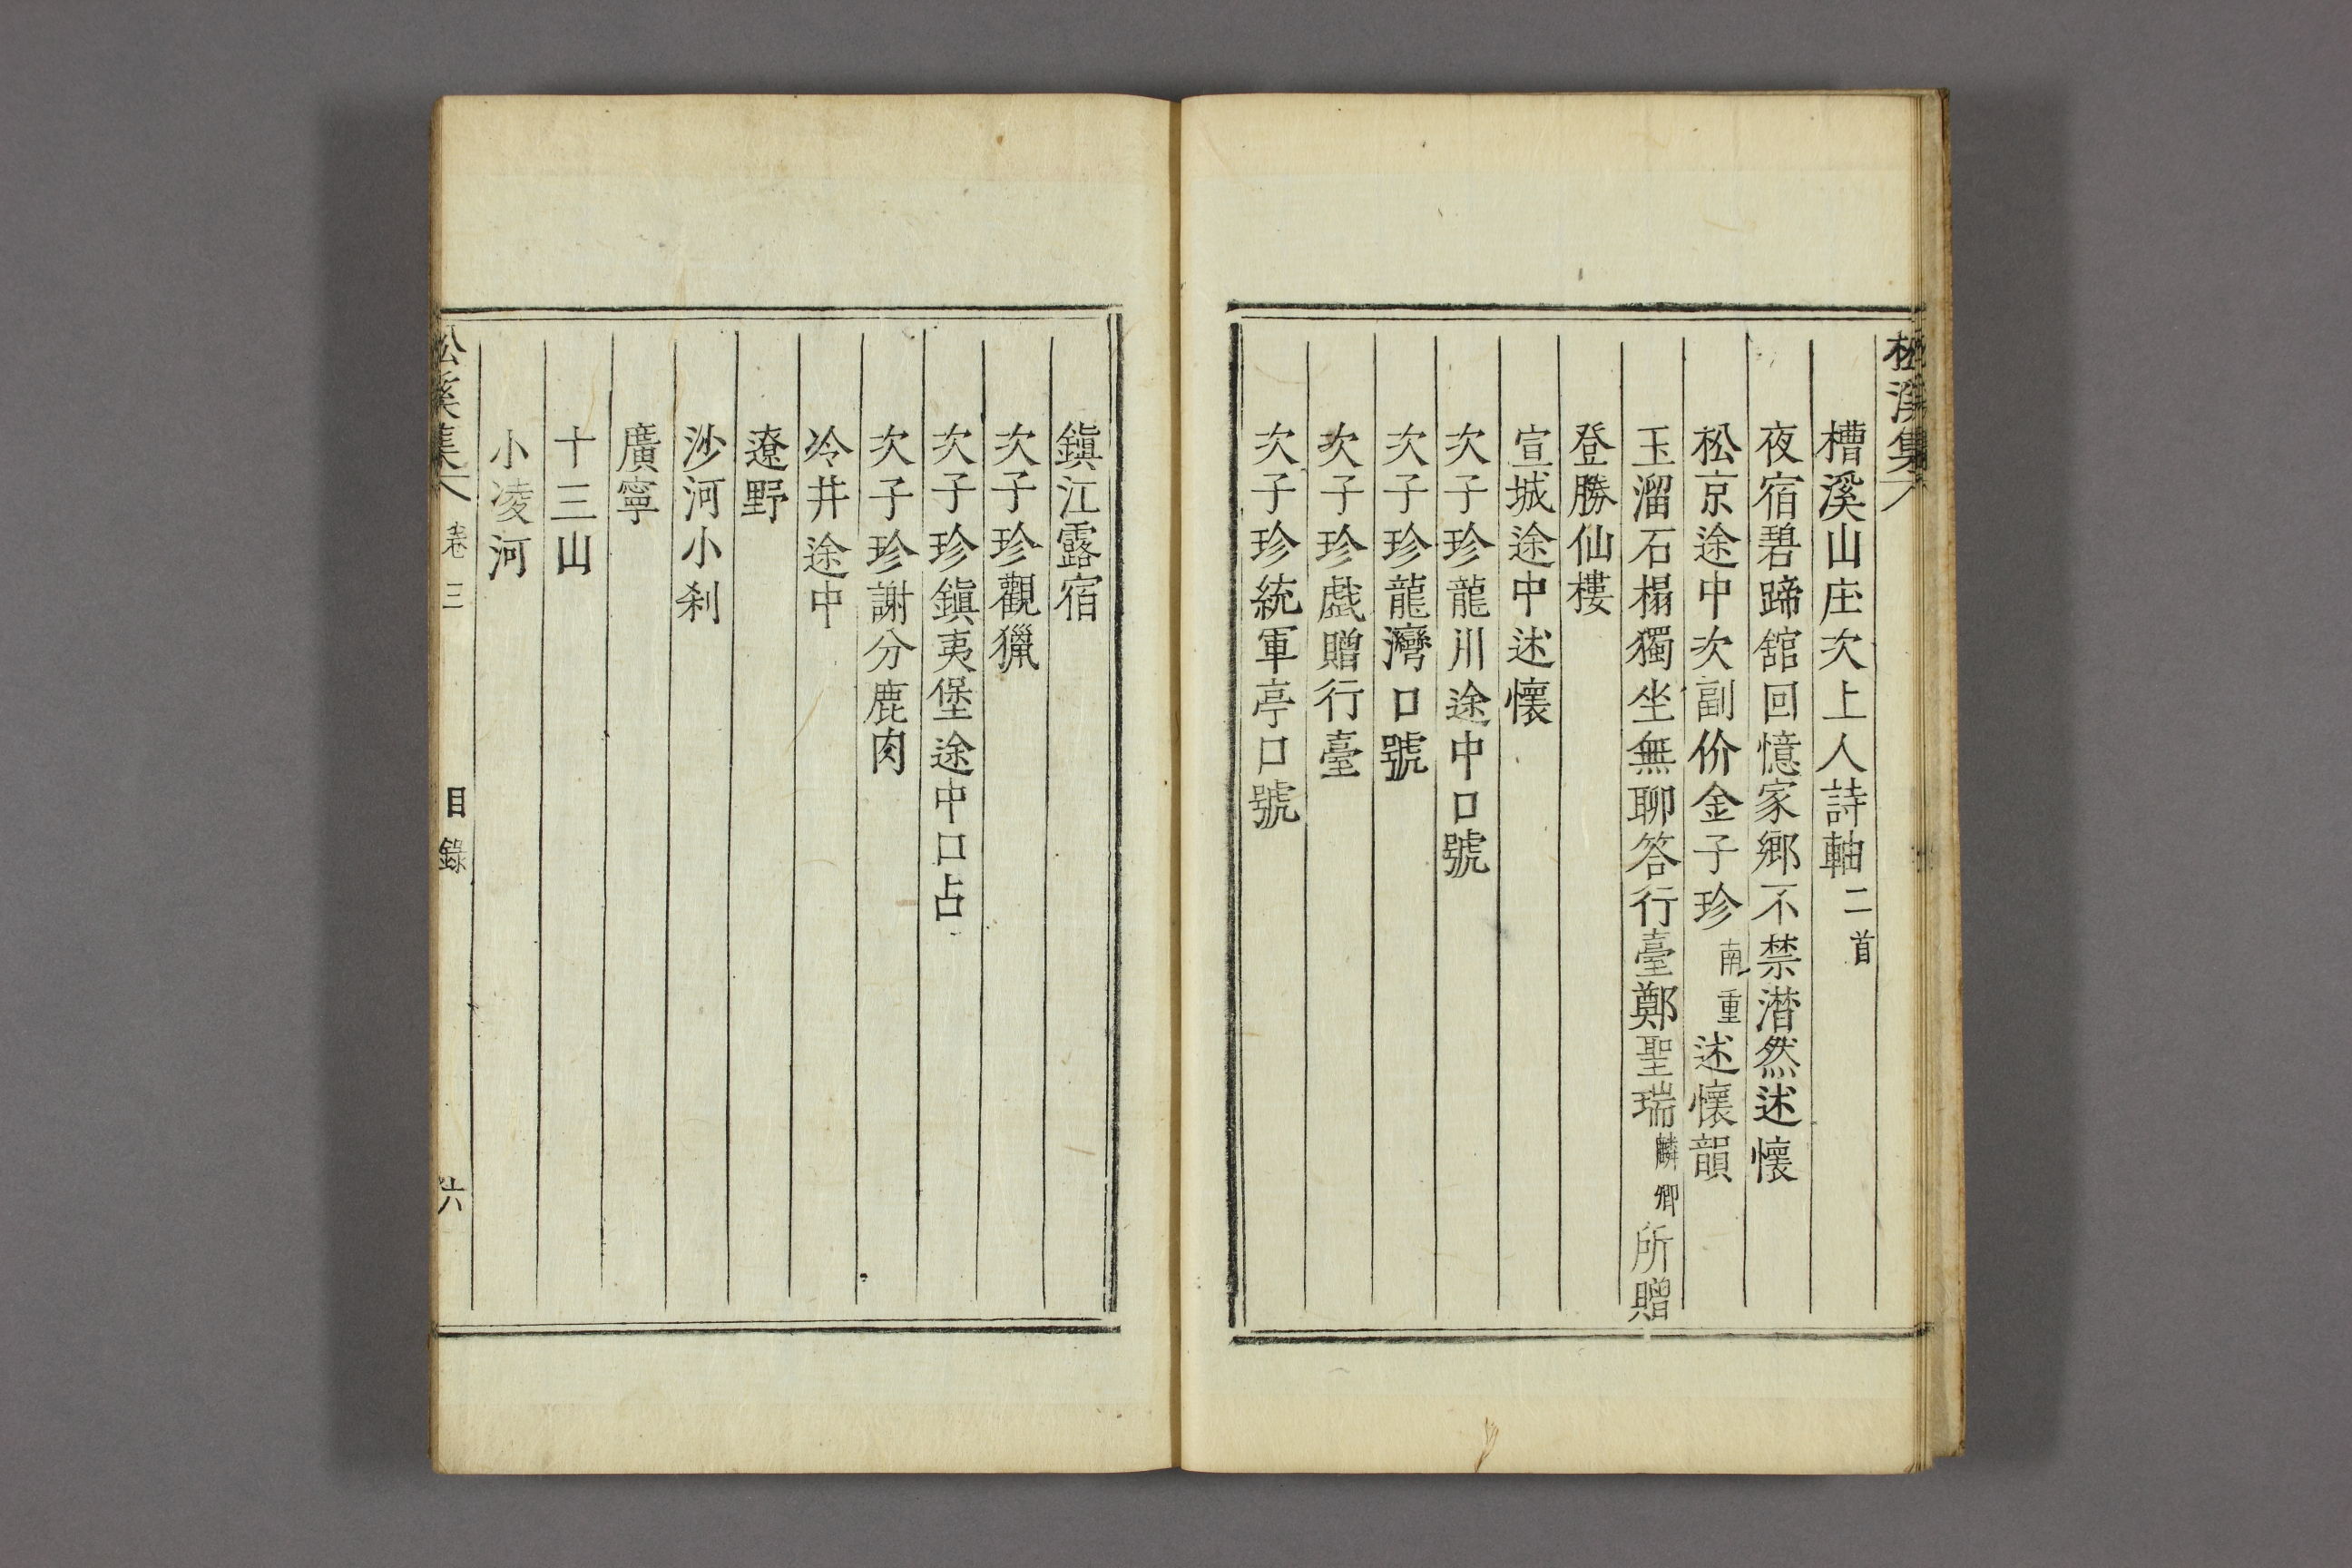 松溪集
槽溪山庄次上人詩軸二首
夜宿碧蹄舘回憶家鄉不禁潸然述懷
松京途中次副价金子珍南重述懷韻
玉溜石榻獨坐無聊答行臺鄭聖瑞麟卿所贈
登勝仙樓
宣城途中述懷
次子珍龍川途中口號
次子珍龍灣口號
次子珍戱贈行臺
次子珍統軍亭口號
鎭江露宿
次子珍觀獵
次子珍鎭夷堡途中口占
次子珍謝分鹿肉
冷井途中
遼野
沙河小刹
廣寧
十三山
小凌河
松溪集 卷三 目錄 六